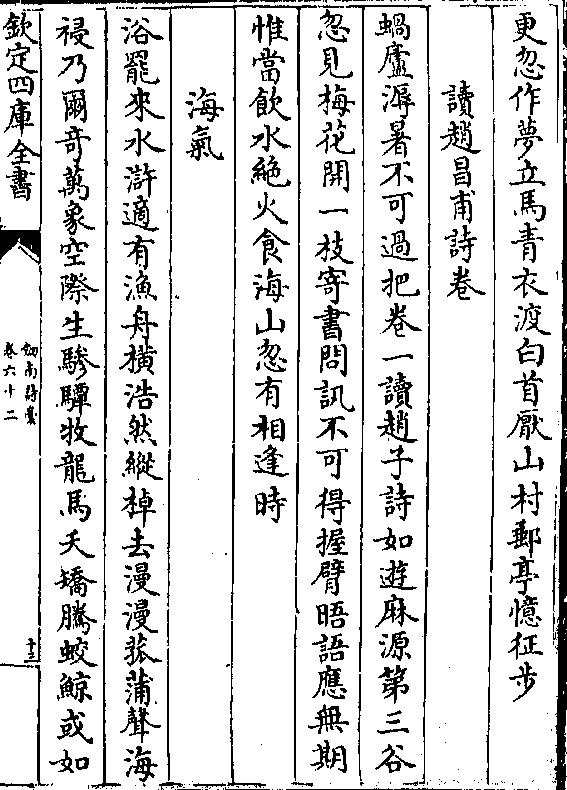 更忽作夢立馬青衣渡白首厭山村郵亭憶征步
讀趙昌甫詩卷
蝸廬溽暑不可過把卷一讀趙子詩如遊麻源第三谷
忽見梅花開一枝寄書問訊不可得握臂晤語應無期
惟當飲水絶火食海山忽有相逢時
海氣
浴罷來水滸適有漁舟横浩然縱棹去漫漫菰蒲聲海
祲乃爾奇萬象空際生驂驔牧龍馬夭矯騰蛟鯨或如
欽定四庫全書
劒南詩藁
卷六十二
十三